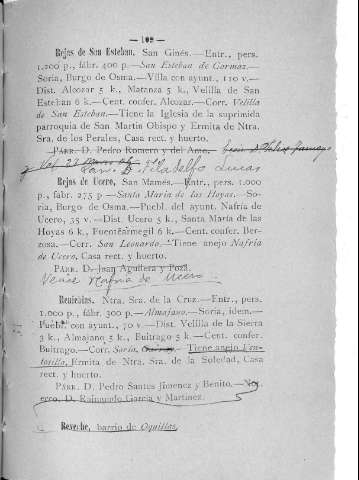 — 109 —
Rejas de San Esteban, San Ginés.—Entr., pers.
1,200 p., fábr. 400 p.—San Esteban de Gormaz.—
Soria, Burgo de Osma.—Villa con ayunt., 110 v.—
Dist. Alcozar 5 k., Matanza 5 k., Velilla de San
Esteban 6 k.—Cent. confer. Alcozar.—Corr. Velilla
de San Esteban.—Tiene la Iglesia de la suprimida
parroquia de San Martín Obispo y Ermita de Ntra.
Sra. de los Perales, Casa rect. y huerto.
Párr. D. Pedro Romero y del Amo.
D. Filadelfo Lucas
Rejas de Ucero, San Mamés.—Entr., pers. 1.000
p., fabr. 275 p—Santa María de las Hoyas.—So-
ria, Burgo de Osma.—Puebl. del ayunt. Nafría de
Ucero, 35 v.—Dist. Ucero 5 k., Santa María de las
Hoyas 6 k., Fuentearmegil 6 k.—Cent. confer. Ber-
zosa.—Corr. San Leonardo.—Tiene anejo Nafría
de Ucero, Casa rect. y huerto.
Párr. D. Juan Aguilera y Poza.
Véase Nafría de Ucero.
Renieblas, Ntra. Sra. de la Cruz.—Entr., pers.
1.000 p., fábr. 300 p.—Almajano.—Soria, idem.—
Puebl. con ayunt., 70 v.—Dist. Velilla de la Sierra
3 k., Almajano 5 k., Buitrago 5 k.—Cent. confer.
Buitrago.—Corr. Soria, Tiene anejo Ven-
tosilla, Ermita de Ntra. Sra. de la Soledad, Casa
rect. y huerto.
Párr. D. Pedro Santos Jimenez y Benito.—
D. Raimundo García y Martinez.
Reveche, barrio de Oquillas.